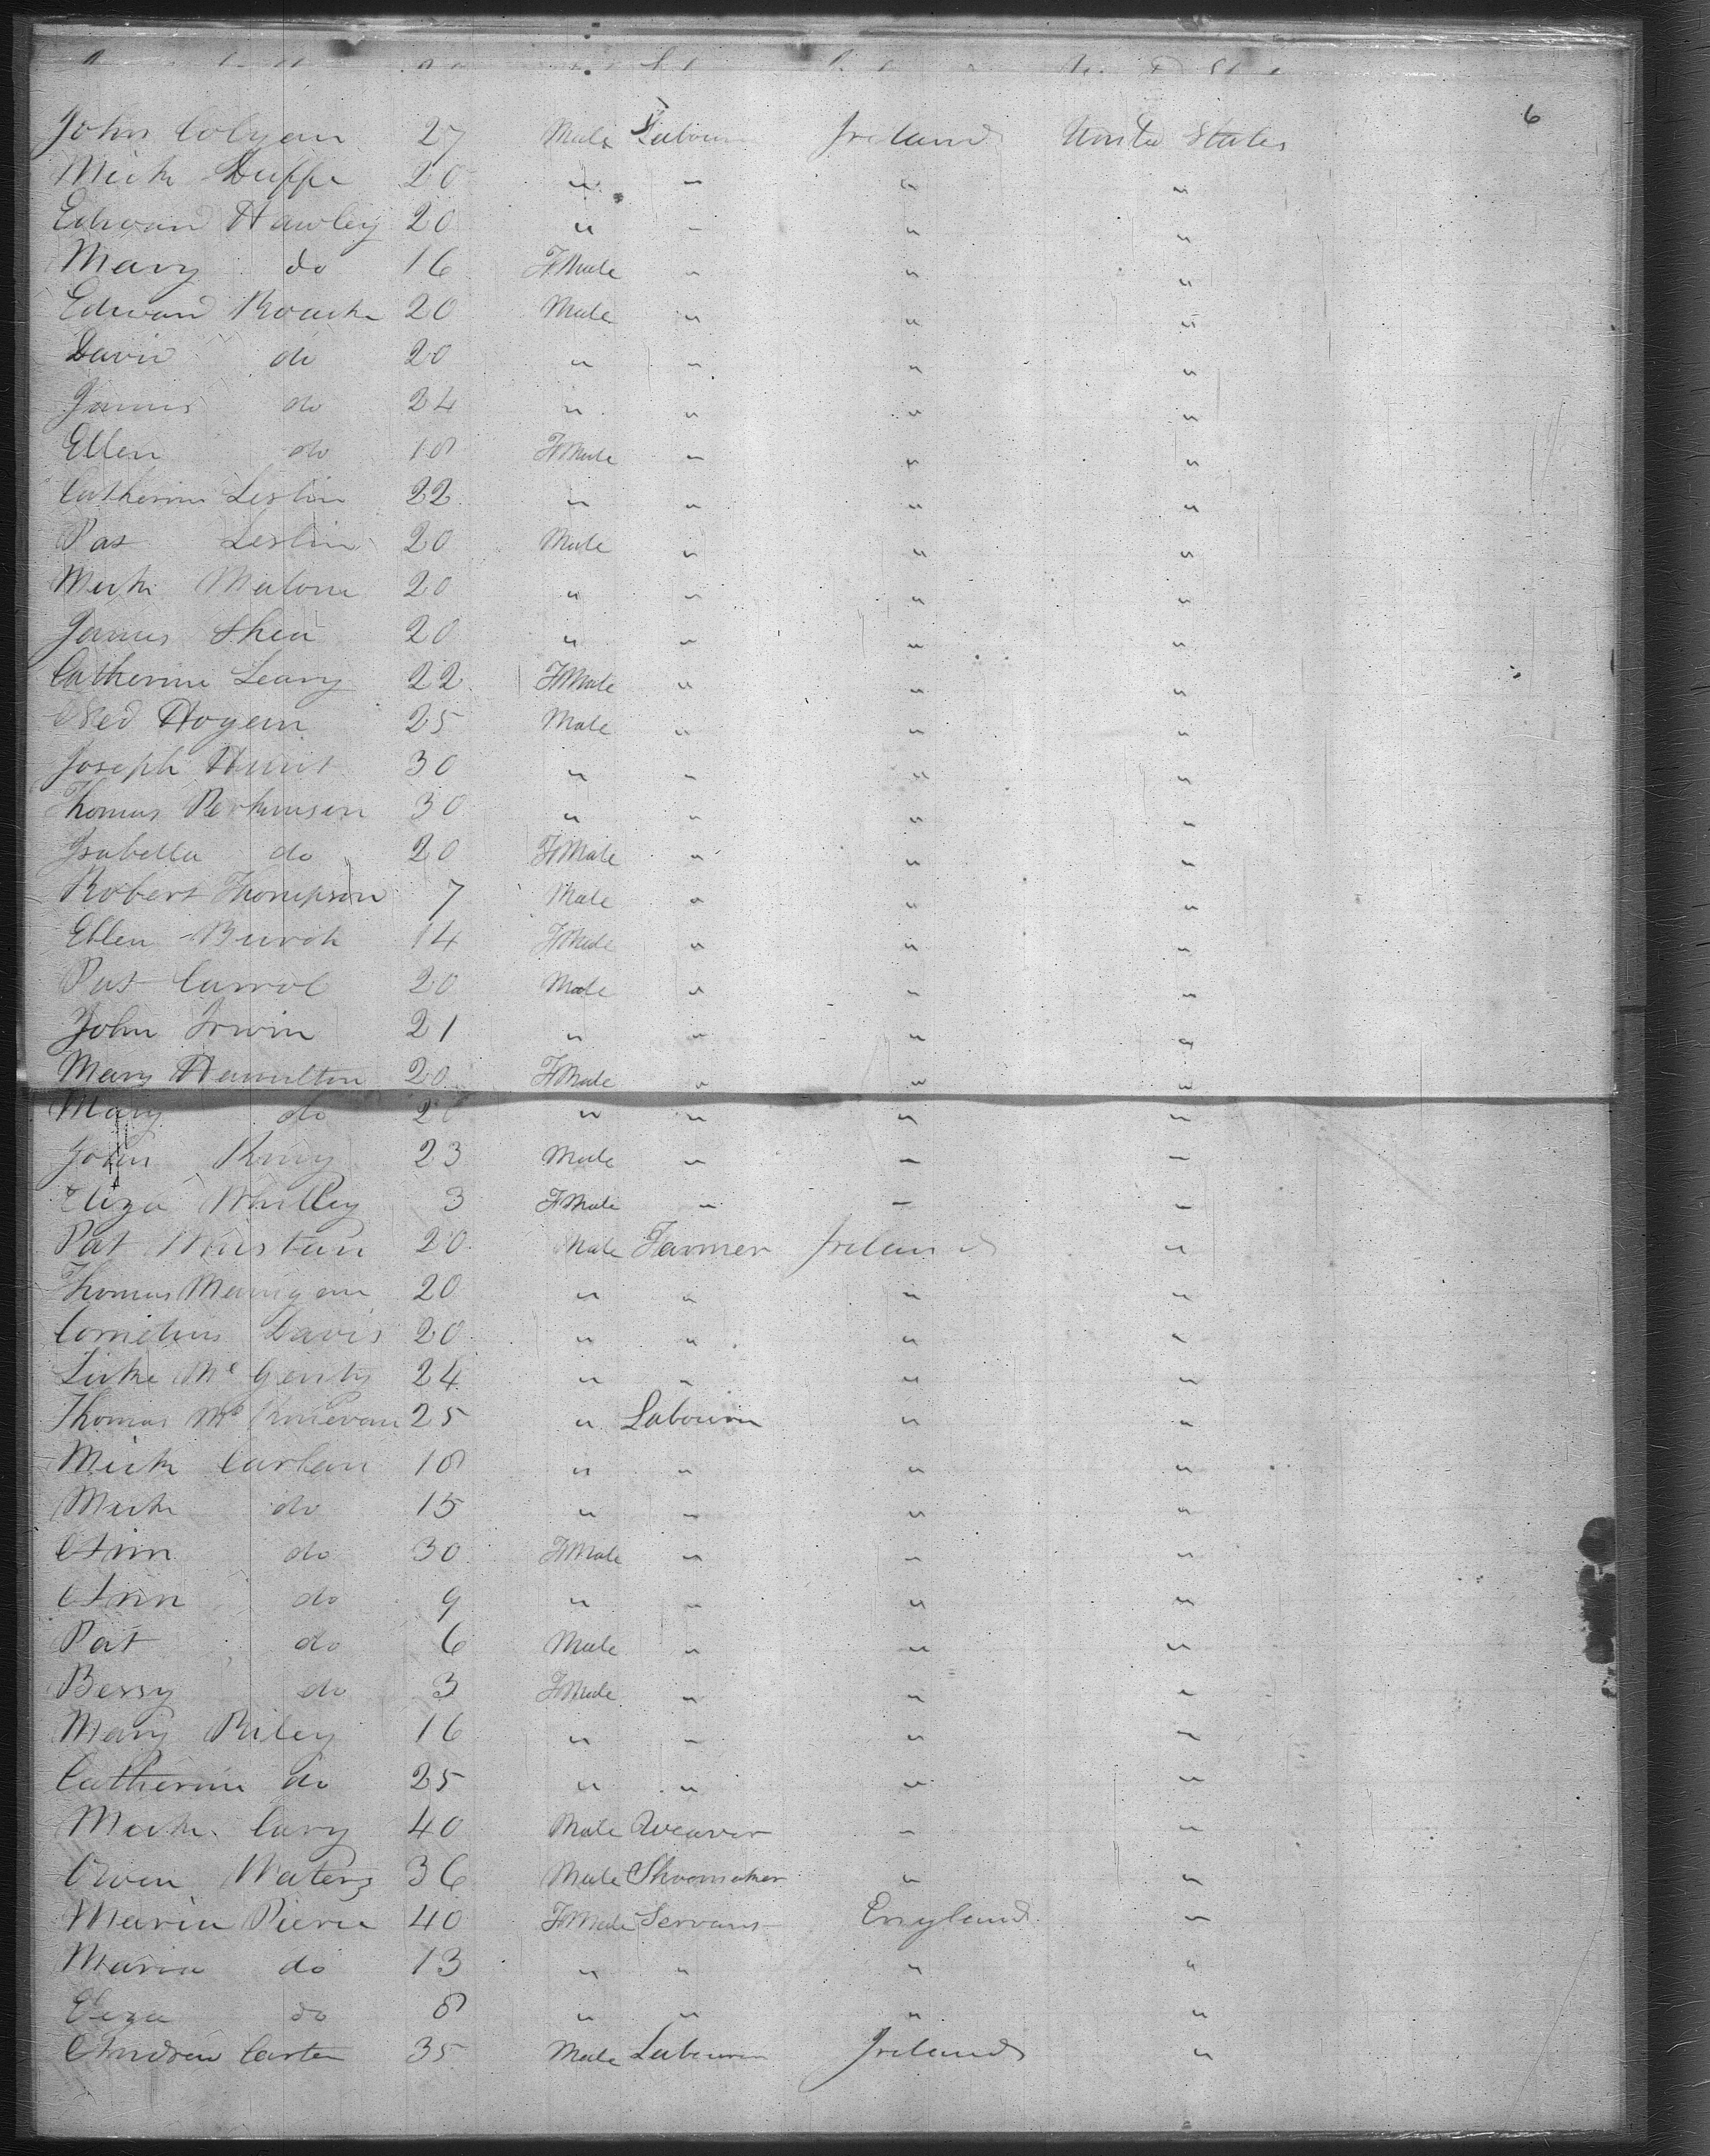 6
John Colgan 27 Male Labourer Ireland United States
Mick Duffe 20 " " " "
Edward Hawley 20 " " " "
Mary do 16 FMale " " "
Edward Roache 20 Male " " "
David do 20 " " " "
James do 24 " " " "
Ellen do 18 FMale " " "
Catherine Leslin 22 " " " "
Pat Leslin 20 Male " " "
Mick Malone 20 " " " "
James Shea 20 " " " "
Catherine Leary 22 FMale " " "
Ned Hogan 25 Male " " "
Joseph Hunt 30 " " " "
Thomas Perkinson 30 " " " "
Isabella do 20 FMale " " "
Robert Thompson 7 Male " " "
Ellen Burch 14 FMale " " "
Pat Carrol 20 Male " " "
John Irwin 21 " " " "
Mary Hamilton 20 FMale " " "
Mary do 20 " " " "
John King 23 Male " " "
Eliza Whilley 3 FMale " " "
Pat 20 Male Farmer Ireland "
Thomas Manigan 20 " " " "
Cornelius Davis 20 " " " "
Luke McGenty 24 " " " "
Thomas 25 " Labourer " "
Mick Carlan 18 " " " "
Mick do 15 " " " "
Ann do 30 FMale " " "
Ann do 9 " " " "
Pat do 6 Male " " "
Bessy do 3 FMale " " "
Mary Riley 16 " " " "
Catherine do 25 " " " "
Mick Cary 40 Male Weaver " "
Owen Waters 36 Male Shoemaker " "
Maria Pierce 40 FMale Servant England "
Maria do 13 " " " "
Eliza do 8 " " " "
Andrew Carter 35 Male Labourer Ireland "